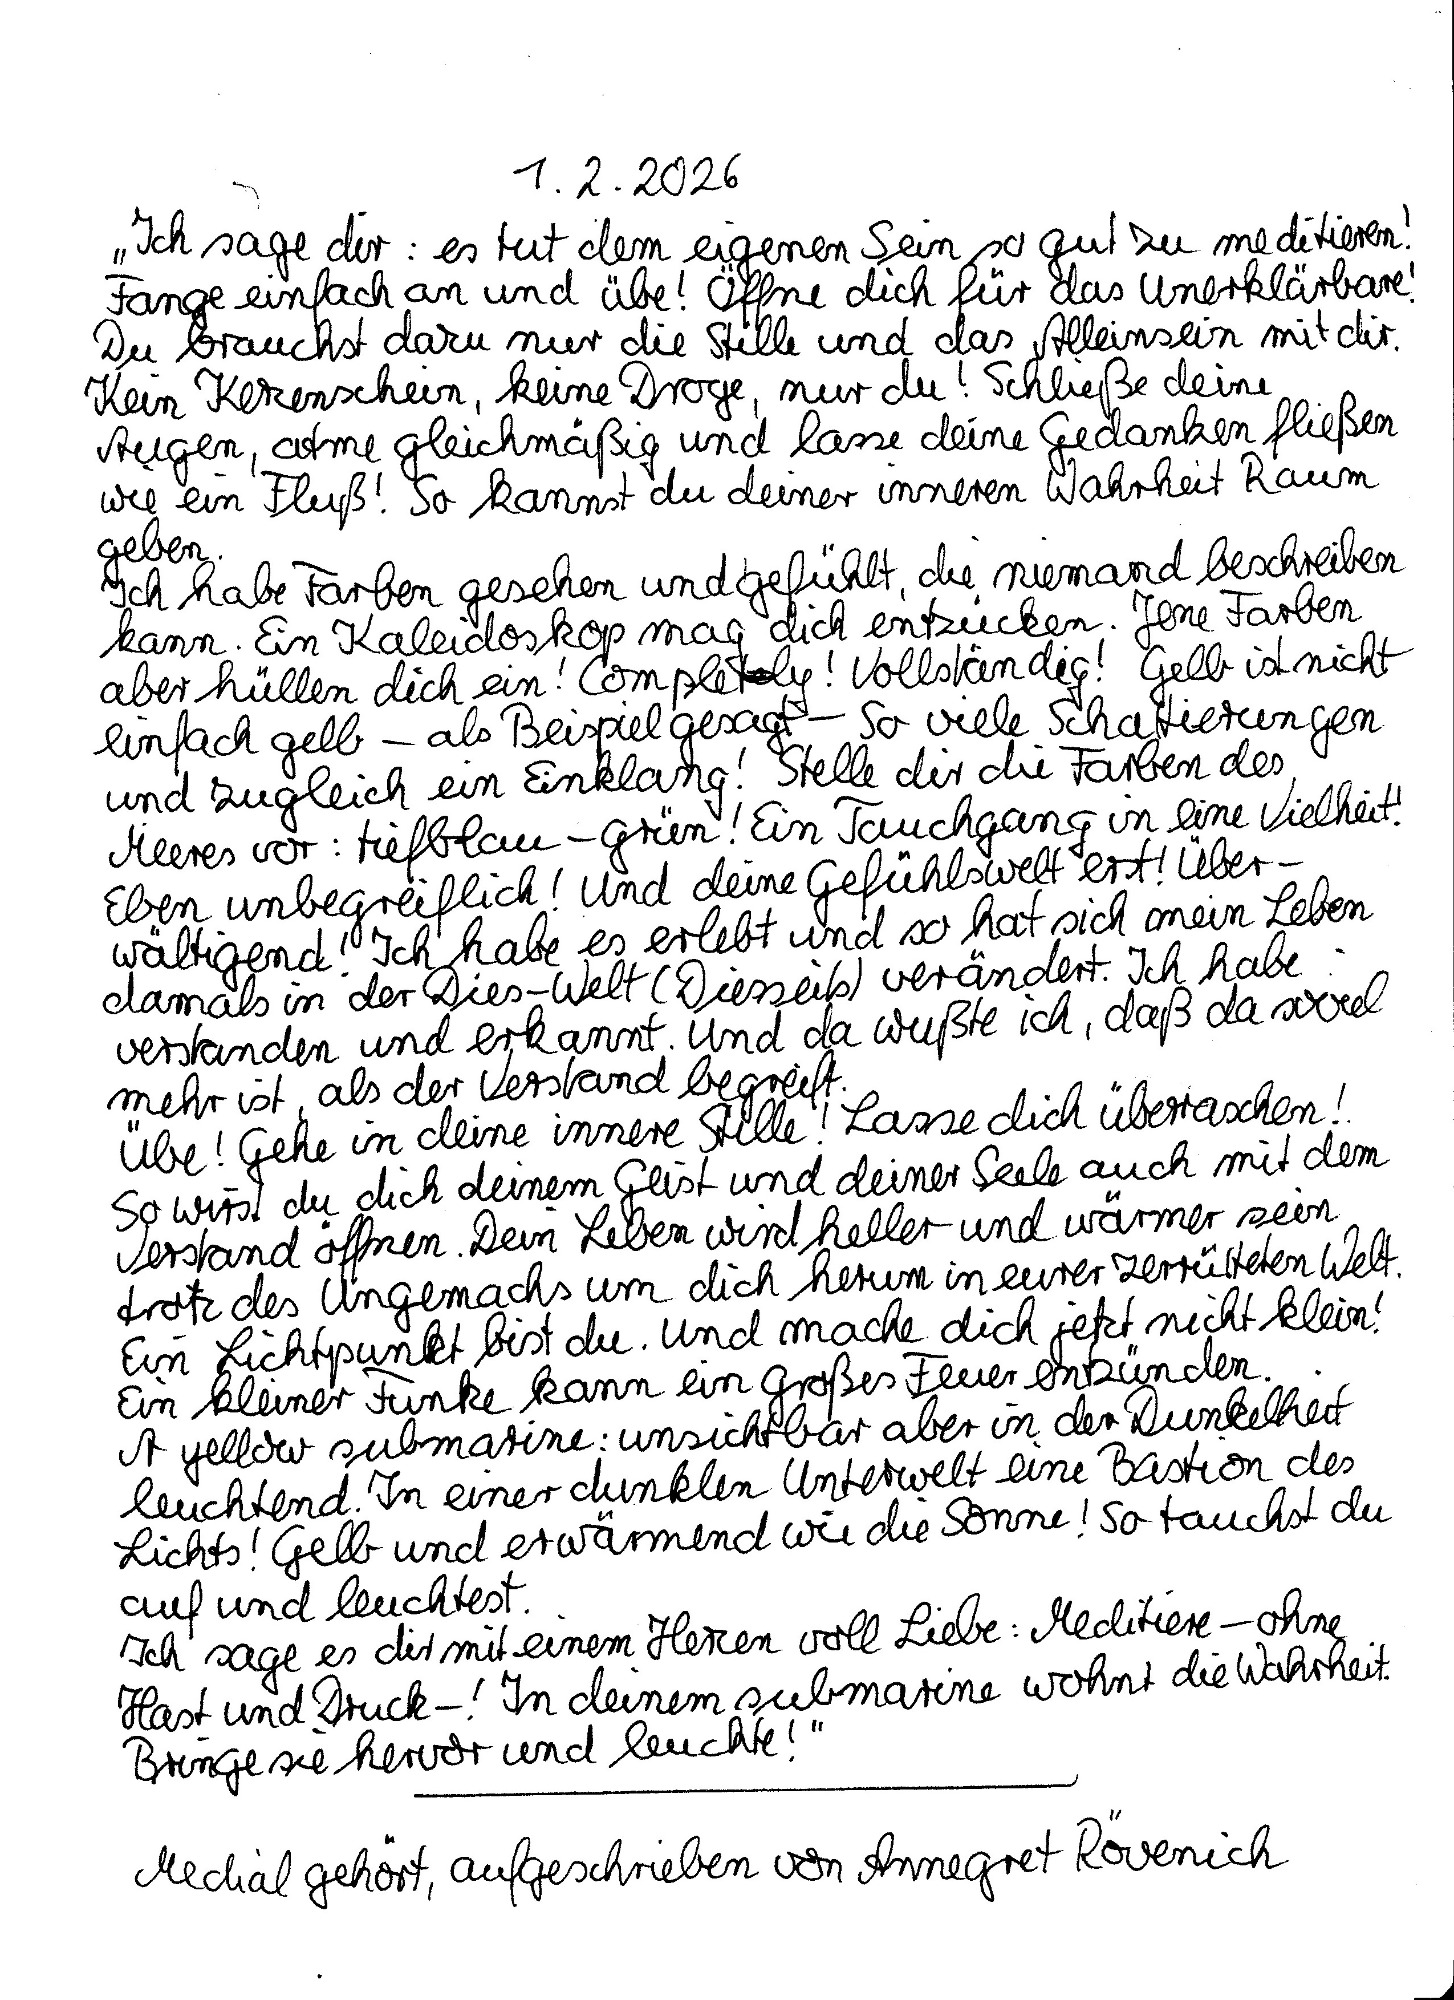 1. 2. 2026
„Ich sage dir: es tut dem eigenen Sein so gut zu meditieren!
Fange einfach an und übe! Öffne dich für das Unerklärbare!
Du brauchst dazu nur die Stille und das Alleinsein mit dir.
Kein Kerzenschein, keine Droge, nur du! Schließe deine
Augen, atme gleichmäßig und lasse deine Gedanken fließen
wie ein Fluß! So kannst du deiner inneren Wahrheit Raum
geben.
Ich habe Farben gesehen und gefühlt, die niemand beschreiben
kann. Ein Kaleidoskop mag dich entzücken. Jene Farben
aber hüllen dich ein! Completely! Vollständig! Gelb ist nicht
einfach gelb – als Beispiel gesagt – So viele Schattierungen
und zugleich ein Einklang! Stelle dir die Farben des
Meeres vor: tiefblau – grün! Ein Tauchgang in eine Vielheit!
Eben unbegreiflich! Und deine Gefühlswelt erst! Über-
wältigend! Ich habe es erlebt und so hat sich mein Leben
damals in der Dies-Welt (Diesseits) verändert. Ich habe
verstanden und erkannt. Und da wußte ich, daß da soviel
mehr ist, als der Verstand begreift.
Übe! Gehe in deine innere Stille! Lasse dich überraschen!
So wirst du dich deinem Geist und deiner Seele auch mit dem
Verstand öffnen. Dein Leben wird heller und wärmer sein
trotz des Ungemachs um dich herum in eurer zerrütteten Welt.
Ein Lichtpunkt bist du. Und mache dich jetzt nicht klein!
Ein kleiner Funke kann ein großes Feuer entzünden.
A yellow submarine: unsichtbar aber in der Dunkelheit
leuchtend. In einer dunklen Unterwelt eine Bastion des
Lichts! Gelb und erwärmend wie die Sonne! So tauchst du
auf und leuchtest.
Ich sage es dir mit einem Herzen voll Liebe: Meditiere – ohne
Hast und Druck –! In deinem submarine wohnt die Wahrheit.
Bringe sie hervor und leuchte!"
Medial gehört, aufgeschrieben von Annegret Rövenich